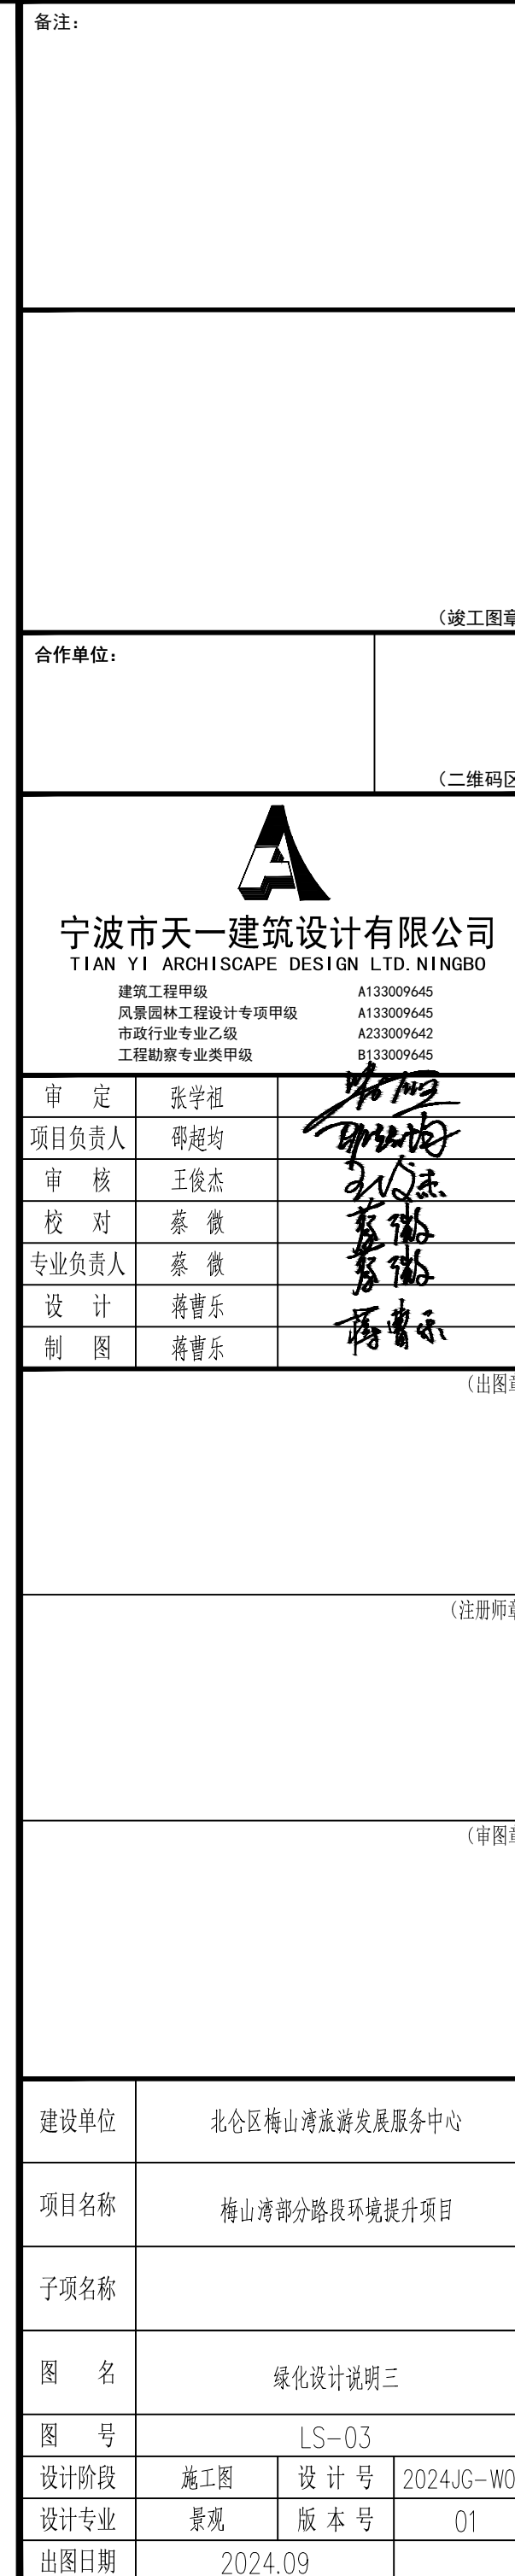 备注：
（竣工图章
合作单位：
（二维码区
宁波市天一建筑设计有限公司
TIAN YI ARCHISCAPE DESIGN LTD.NINGBO
建筑工程甲级 A133009645
风景园林工程设计专项甲级 A133009645
市政行业专业乙级 A233009642
工程勘察专业类甲级 B133009645
审 定 张学祖
项目负责人 邵超均 邵超均
审 核 王俊杰 王俊杰
校 对 蔡 微 蔡微
专业负责人 蔡 微 蔡微
设 计 蒋曹乐
制 图 蒋曹乐 蒋曹乐
（出图章
（注册师章
（审图章
建设单位 北仑区梅山湾旅游发展服务中心
项目名称 梅山湾部分路段环境提升项目
子项名称
图 名 绿化设计说明三
图 号 LS-03
设计阶段 施工图 设 计 号 2024JG-W0
设计专业 景观 版 本 号 01
出图日期 2024.09